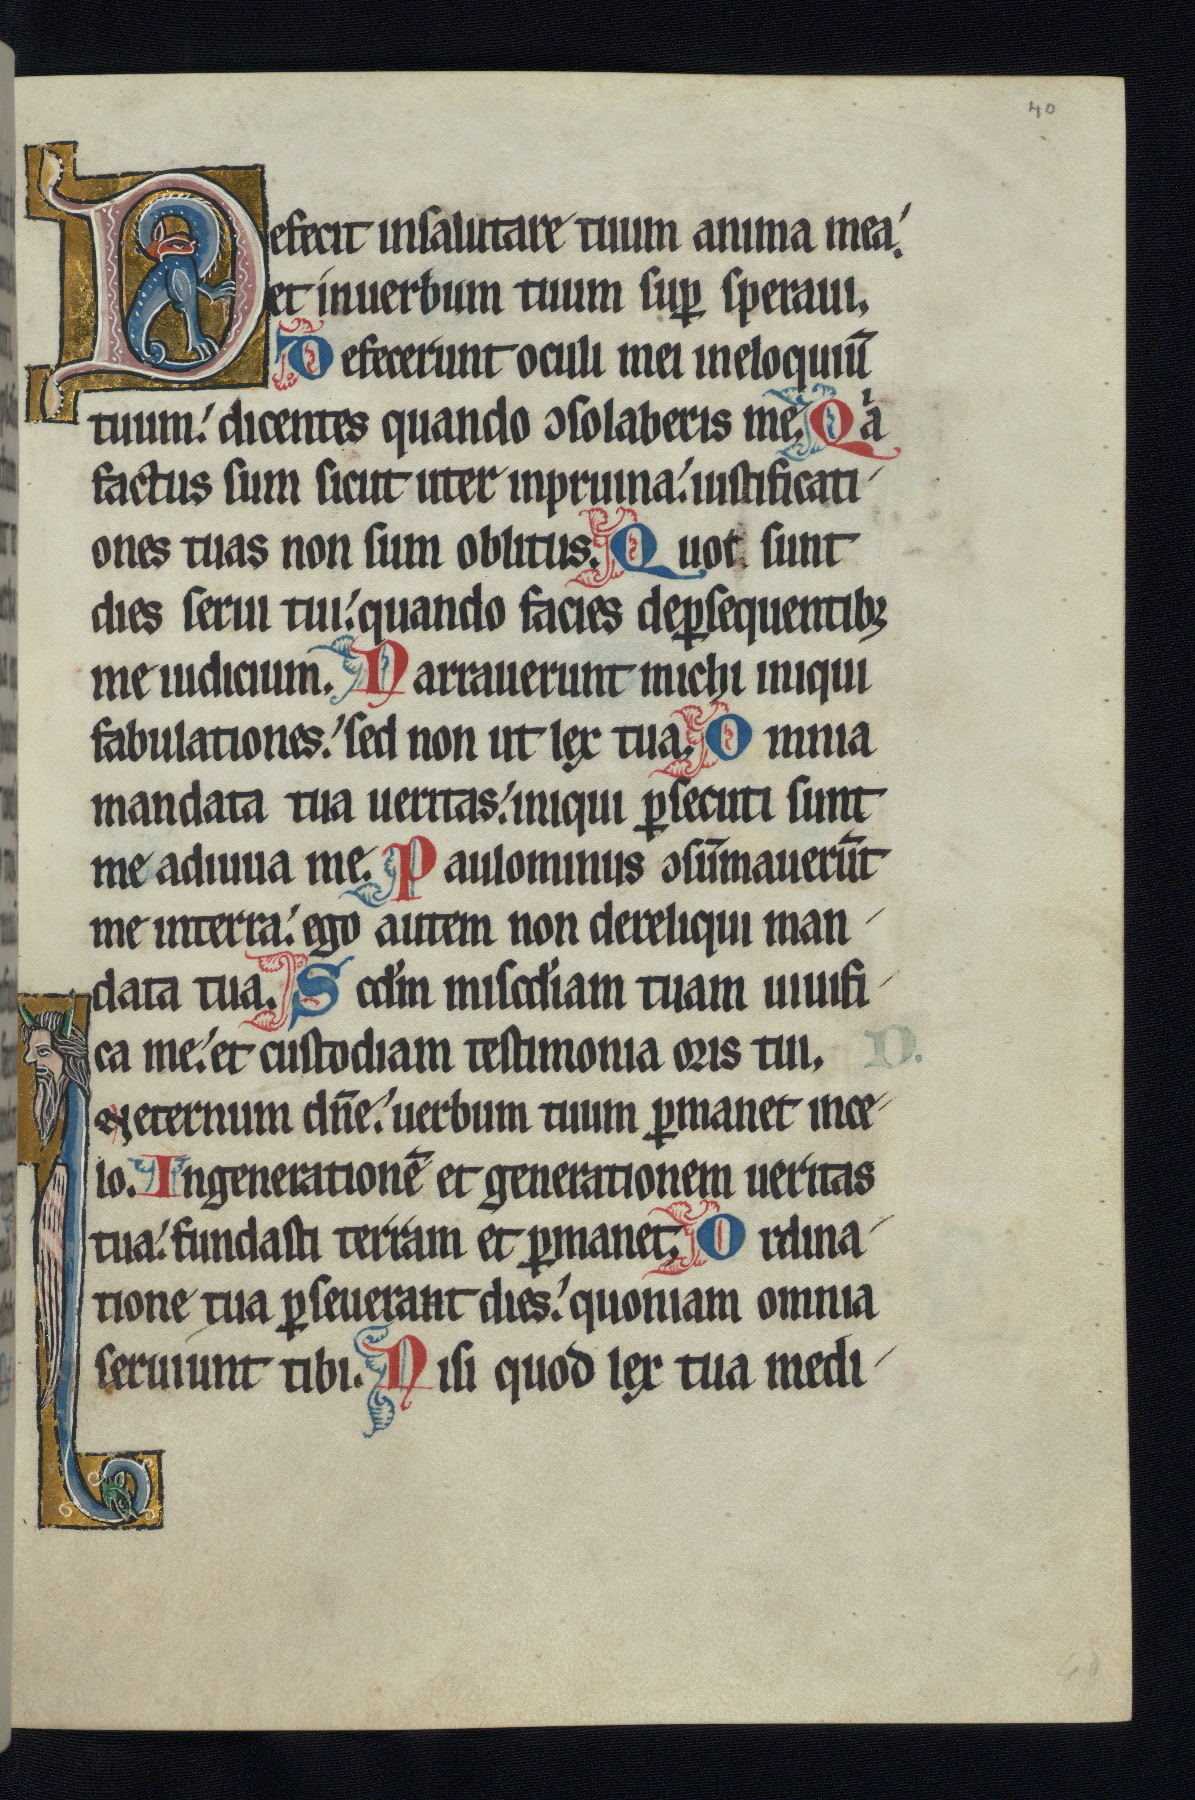 40
Defecit insalutare tuum anima mea.
et inuerbum tuum sup̱ speraui,
Defecerunt oculi mei ineloquiū
tuum. dicentes quando ↄsolaberis me. Qᵃa
factus sum sicut uter inpruina. iustificati
ones tuas non sum oblitus. Quot sunt
dies serui tui. quando facies deꝑsequentibꝫ
me iudicium. Narrauerunt michi iniqui
fabulationes. sed non ut lex tua. Omnia
mandata tua ueritas. iniqui ꝑsecuti sunt
me adiuua me. Paulominus ↄsūmauerūt
me interra. ego autem non dereliqui man
data tua. Scdm miscdiam tuam uiuifi
ca me. et custodiam testimonia oris tui, D.
In eternum dn̄e. uerbum tuum ꝑmanet ince
lo. Ingenerationē et generationem ueritas
tua. fundasti terram et ꝑmanet, Ordina
tione tua ꝑseuerant dies. quoniam omnia
seruiunt tibi. Nisi quod lex tua medi
40